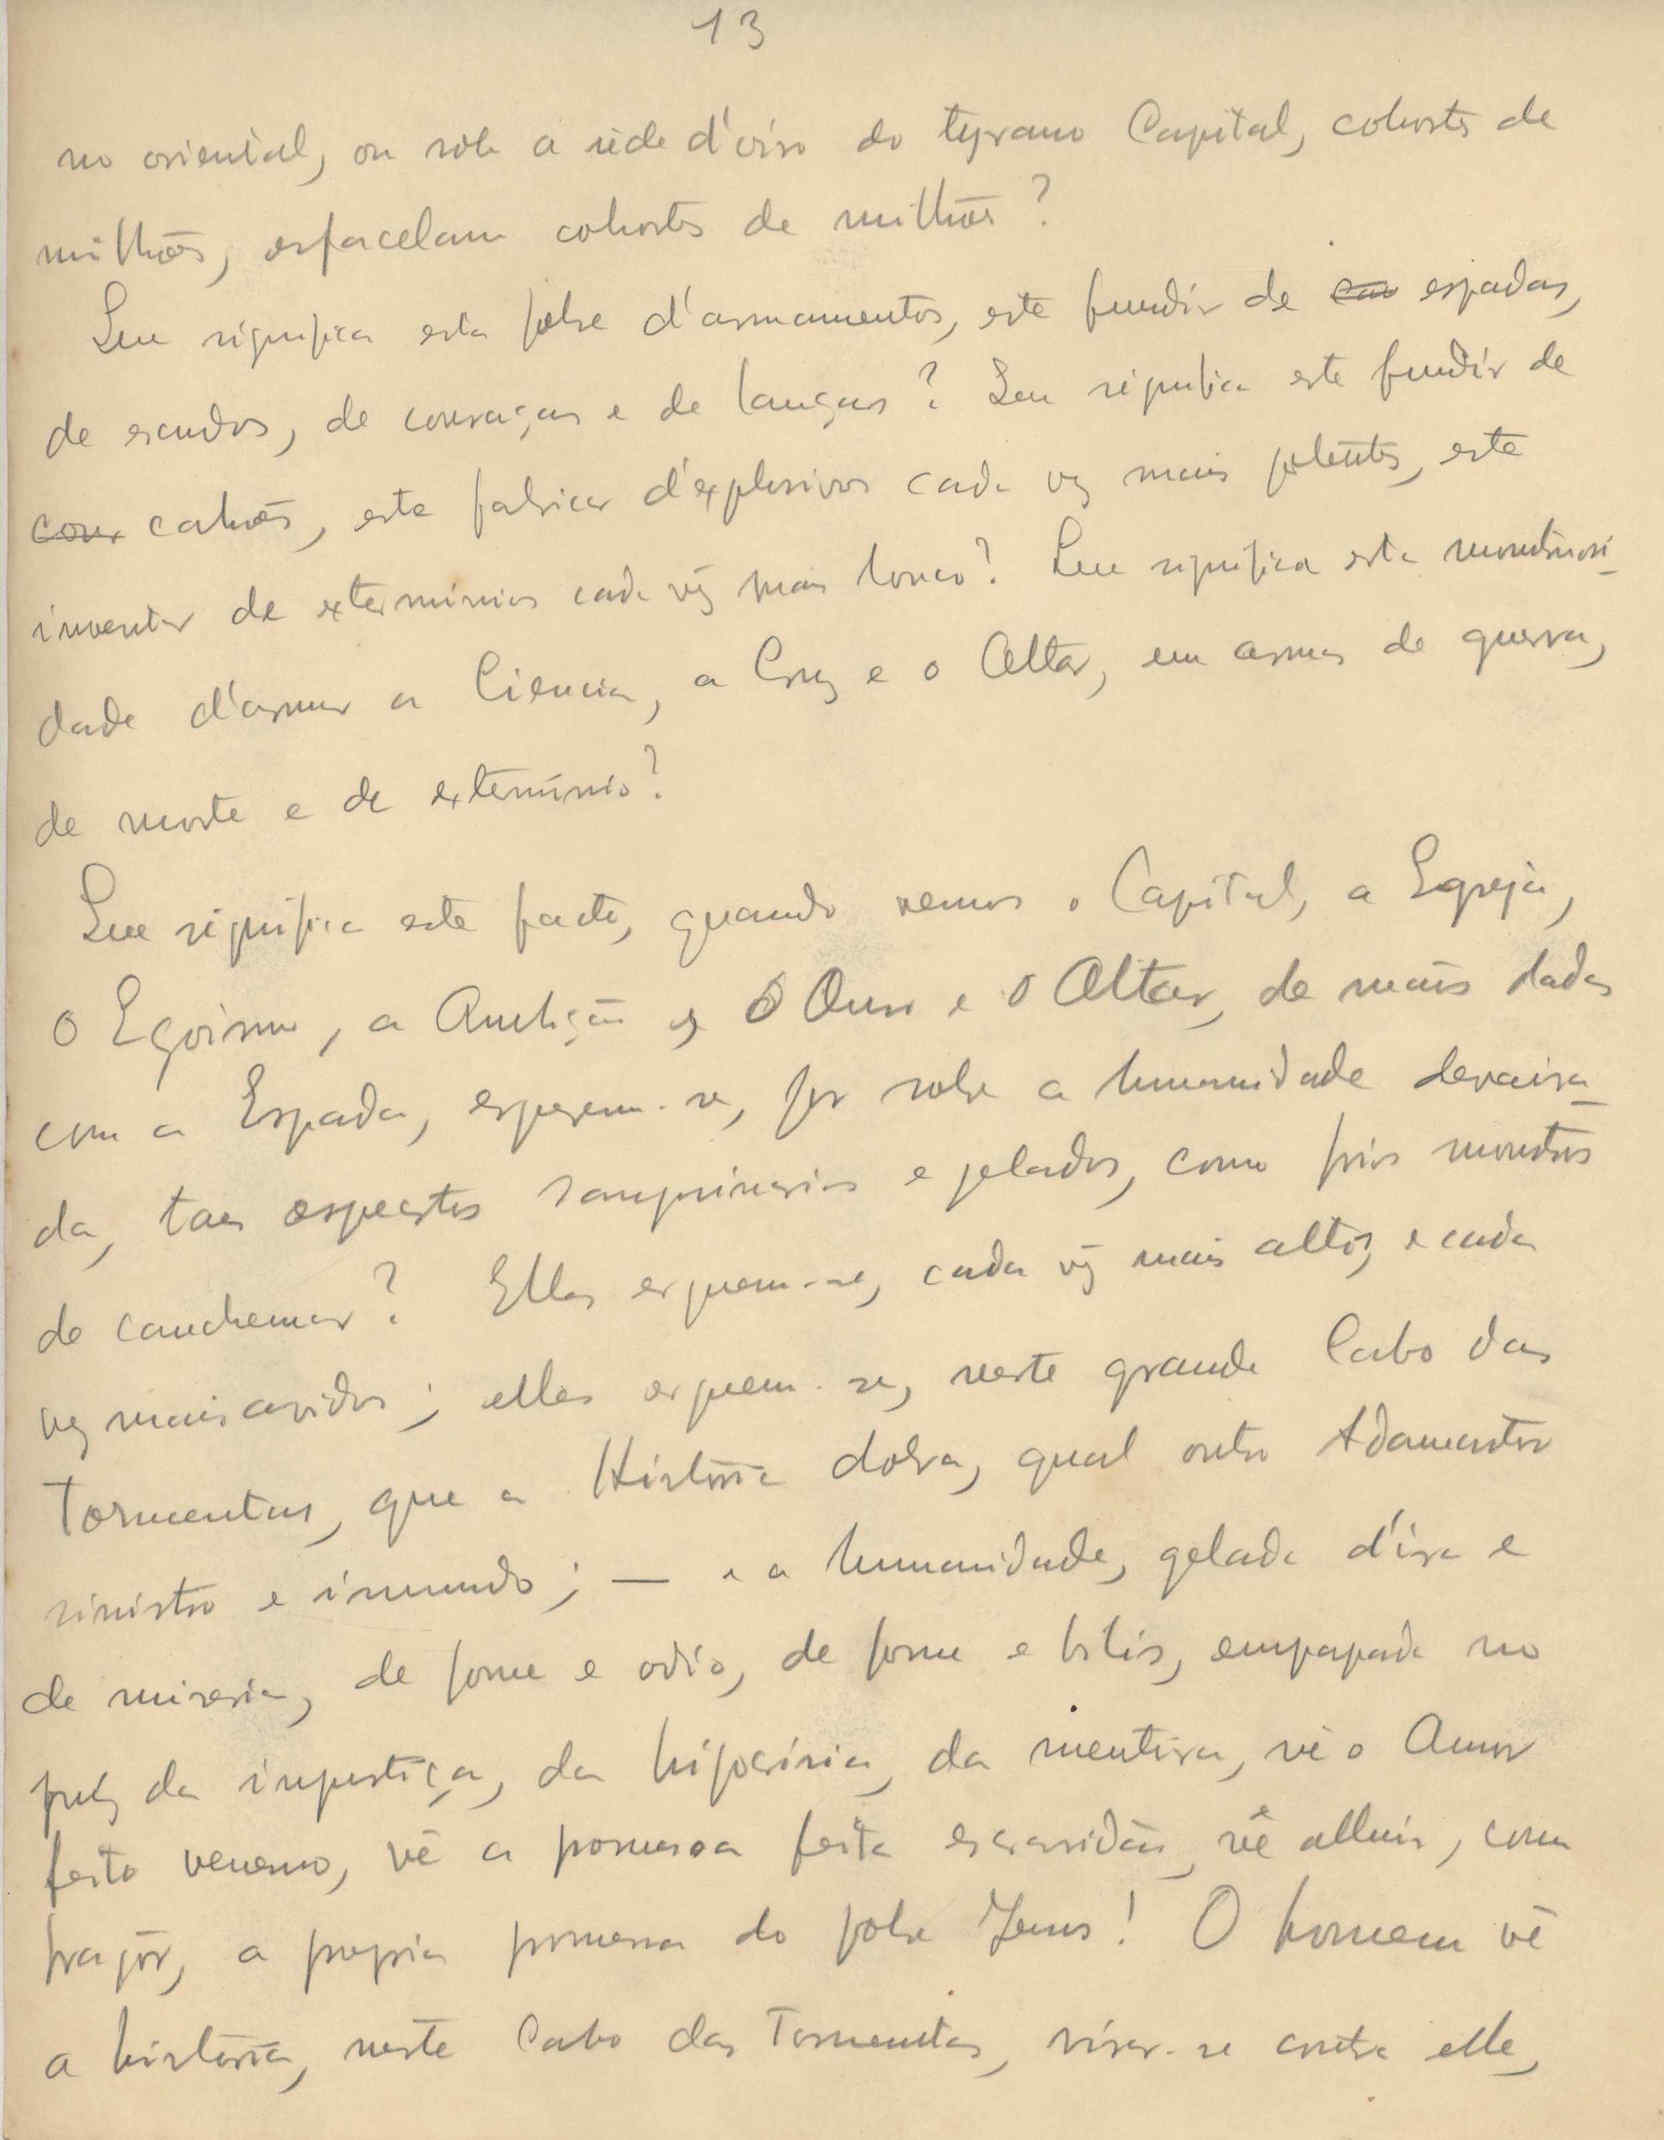 13
no oriental, ou sob a séde d'oiro do tyrano Capital, cohortes de
milhões, esfacelam cohortes de milhões?
Que significa esta febre d'armamentos, este fundir de espadas,
de escudos, de couraças e de lanças? Que significa este fundir de
cour canhões, este fabricar d'explosivos cada vez mais potentes, este
inventar de exterminios cada vez mais louco? Que significa esta monstruosi-
dade d'armar a Ciencia, a Cruz e o Altar, em armas de guerra,
de morte e de exterminio?
Que significa este facto, quando vemos o Capital, a Egreja,
O Egoismo, a Ambição, O Ouro e o Altar, de mãos dadas
com a Espada, erguerem-se, por sobre a humanidade desvaira-
da, taes espectros sanguinarios e gelados, como frios monstros
de cauchemar? Elles erguem-se, cada vez mais altos, e cada
vez mais avidos; elles erguem-se, neste grande Cabo das
Tormentas, que a Historia dobra, qual outro Adamastor
sinistro e immundo; — e a humanidade, gelada d'ira e
de miseria, de fome e odio, de fome e bilis, empapada no
puz da injustiça, da hipocrisia, da mentira, vê o Amor
feito veneno, vê a promessa feita escravidão, vê alluir, com
fragôr, a propria promessa do pobre Jesus! O homem vê
a historia, neste Cabo das Tormentas, virar-se contra elle,